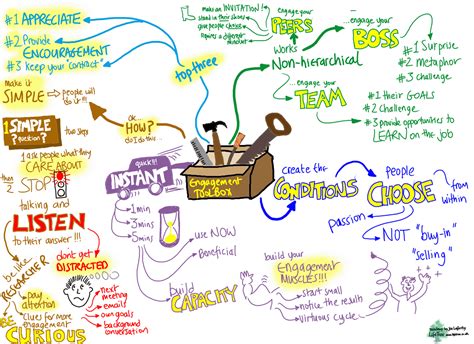 #1 APPRECIATE
#2 Provide
ENCOURAGEMENT
#3 Keep your "contract"
top three
make an INVITATION!
stand in their shoes
give people choice
requires a different mindset
engage your
PEERS
works
Non-hierarchical
engage your
BOSS
#1 Surprise
#2 metaphor
#3 challenge
engage your
TEAM
#1 their GOALS
#2 Challenge
#3 provide opportunities to
LEARN on the job
make it
SIMPLE
people will
do it!!!
ok...
HOW?
do I do this...
1 SIMPLE
question?
two steps
1 ask people what they
CARE ABOUT
then
2
STOP
talking and
LISTEN
to their answer!!!
be like
RESEARCHER
pay
attention
Clues for more
engagement
BE
CURIOUS
dont get
DISTRACTED
next
meeting
emails
our goals
background
conversation
quick!!
INSTANT
1min
3mins
5mins
use NOW
Beneficial
Engagement
TOOLBOX
create the
CONDITIONS
people
CHOOSE
from
within
passion
NOT "buy-in"
"selling"
build
CAPACITY
build your
Engagement
MUSCLES!!!
start small
notice the result
virtuous cycle